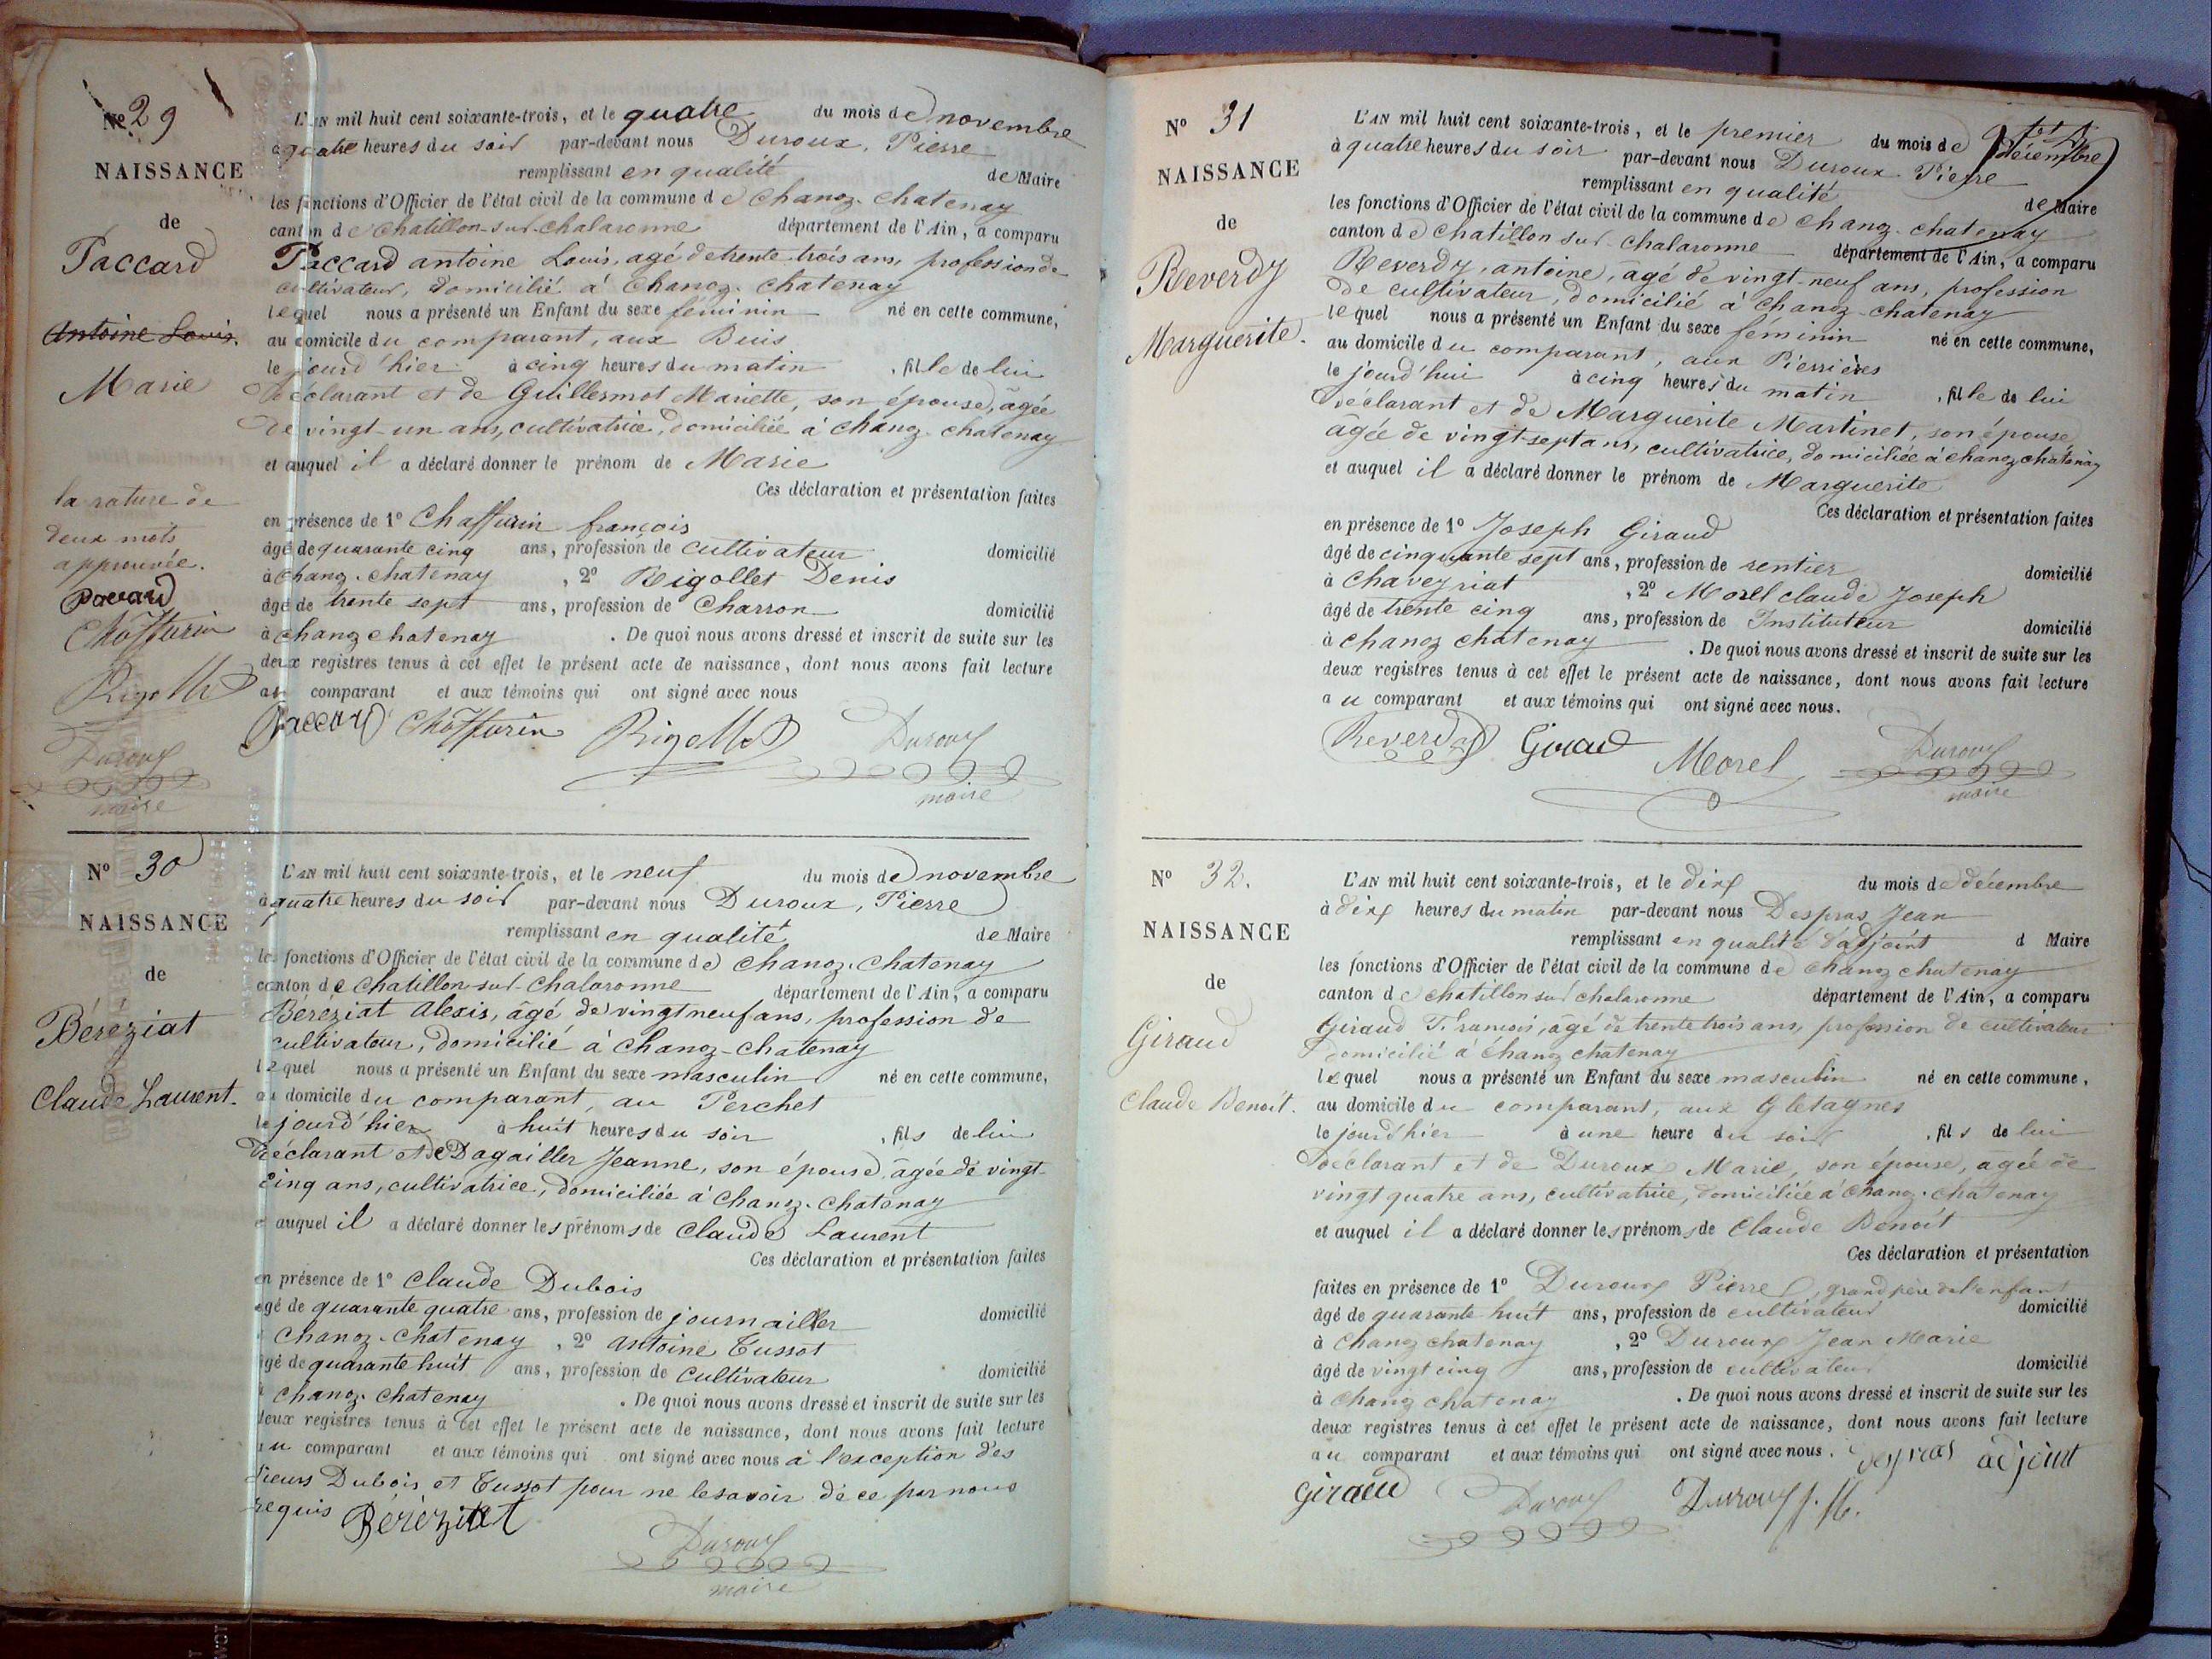 Nº 29
NAISSANCE
de
Paccard
Antoine Louis.
Marie
la rature de
deux mots
approuvée.
Paccard
Chaffurin
Rigollet
Duroux
maire
L'AN mil huit cent soixante-trois, et le quatre du mois de novembre
à quatre heures du soir par-devant nous Duroux, Pierre
remplissant en qualité de Maire
les fonctions d'Officier de l'état civil de la commune de Chanoz-Chatenay
canton de Chatillon-sur-Chalaronne département de l'Ain, a comparu
Paccard antoine Louis, agé de trente-trois ans, profession de
cultivateur, domicilié à Chanoz-Chatenay
lequel nous a présenté un Enfant du sexe féminin né en cette commune,
au domicile du comparant, aux Buis
le jourd'hier à cinq heures du matin , fille de lui
déclarant et de Guillermot Mariette, son épouse, âgée
de vingt-un ans, cultivatrice, domiciliée à Chanoz-Chatenay
et auquel il a déclaré donner le prénom de Marie
Ces déclaration et présentation faites
en présence de 1º Chaffurin françois
âgé de quarante cinq ans, profession de cultivateur domicilié
à Chanoz-Chatenay , 2º Rigollet Denis
âgé de trente sept ans, profession de Charron domicilié
à Chanoz Chatenay . De quoi nous avons dressé et inscrit de suite sur les
deux registres tenus à cet effet le présent acte de naissance, dont nous avons fait lecture
au comparant et aux témoins qui ont signé avec nous
Paccard Chaffurin Rigollet Duroux
maire
Nº 30
NAISSANCE
de
Béréziat
Claude Laurent.
L'AN mil huit cent soixante-trois, et le neuf du mois de novembre
à quatre heures du soir par-devant nous Duroux, Pierre
remplissant en qualité de Maire
les fonctions d'Officier de l'état civil de la commune de Chanoz-Chatenay
canton de Chatillon-sur-Chalaronne département de l'Ain, a comparu
Béréziat Alexis, âgé de vingt neuf ans, profession de
cultivateur, domicilié à Chanoz-Chatenay
lequel nous a présenté un Enfant du sexe masculin né en cette commune,
au domicile du comparant, au Perchet
le jourd'hier à huit heures du soir , fils de lui
déclarant et de Dagailler Jeanne, son épouse, âgée de vingt-
cinq ans, cultivatrice, domiciliée à Chanoz-Chatenay
et auquel il a déclaré donner les prénoms de Claude Laurent
Ces déclaration et présentation faites
en présence de 1º Claude Dubois
âgé de quarante quatre ans, profession de journailler domicilié
à Chanoz-Chatenay , 2º Antoine Tussot
âgé de quarante huit ans, profession de Cultivateur domicilié
à Chanoz-Chatenay . De quoi nous avons dressé et inscrit de suite sur les
deux registres tenus à cet effet le présent acte de naissance, dont nous avons fait lecture
au comparant et aux témoins qui ont signé avec nous à l'exception des
sieurs Dubois et Tussot pour ne le savoir de ce par nous
requis Béréziat
Duroux
maire
Nº 31
NAISSANCE
de
Reverdy
Marguerite.
L'AN mil huit cent soixante-trois, et le premier du mois de décembre
à quatre heures du soir par-devant nous Duroux Pierre
remplissant en qualité de Maire
les fonctions d'Officier de l'état civil de la commune de Chanoz-Chatenay
canton de Chatillon sur Chalaronne département de l'Ain, a comparu
Reverdy, antoine, âgé de vingt-neuf ans, profession
de cultivateur, domicilié à Chanoz-Chatenay
lequel nous a présenté un Enfant du sexe féminin né en cette commune,
au domicile du comparant, aux Pierrières
le jourd'hui à cinq heures du matin , fille de lui
déclarant et de Marguerite Martinet, son épouse,
âgée de vingt-sept ans, cultivatrice, domiciliée à Chanoz Chatenay
et auquel il a déclaré donner le prénom de Marguerite
Ces déclaration et présentation faites
en présence de 1º Joseph Giraud
âgé de cinquante sept ans, profession de rentier domicilié
à Chaveyriat , 2º Morel claude Joseph
âgé de trente cinq ans, profession de Instituteur domicilié
à Chanoz Chatenay . De quoi nous avons dressé et inscrit de suite sur les
deux registres tenus à cet effet le présent acte de naissance, dont nous avons fait lecture
au comparant et aux témoins qui ont signé avec nous.
Reverdy Giraud Morel Duroux
maire
Nº 32.
NAISSANCE
de
Giraud
Claude Benoît.
L'AN mil huit cent soixante-trois, et le dix du mois de décembre
à dix heures du matin par-devant nous Despras Jean
remplissant en qualité d'adjoint d Maire
les fonctions d'Officier de l'état civil de la commune de Chanoz Chatenay
canton de Chatillon sur Chalaronne département de l'Ain, a comparu
Giraud François, âgé de trente trois ans, profession de cultivateur
domicilié à Chanoz Chatenay
lequel nous a présenté un Enfant du sexe masculin né en cette commune,
au domicile du comparant, aux Gletagnes
le jourd'hier à une heure du soir , fils de lui
déclarant et de Duroux Marie, son épouse, âgée de
vingt quatre ans, cultivatrice, domiciliée à Chanoz-Chatenay
et auquel il a déclaré donner les prénoms de Claude Benoît
Ces déclaration et présentation
faites en présence de 1º Duroux Pierre, grand père de l'enfant
âgé de quarante huit ans, profession de cultivateur domicilié
à Chanoz Chatenay , 2º Duroux Jean Marie
âgé de vingt cinq ans, profession de cultivateur domicilié
à Chanoz Chatenay . De quoi nous avons dressé et inscrit de suite sur les
deux registres tenus à cet effet le présent acte de naissance, dont nous avons fait lecture
au comparant et aux témoins qui ont signé avec nous. Despras adjoint
Giraud Duroux Duroux J. M.